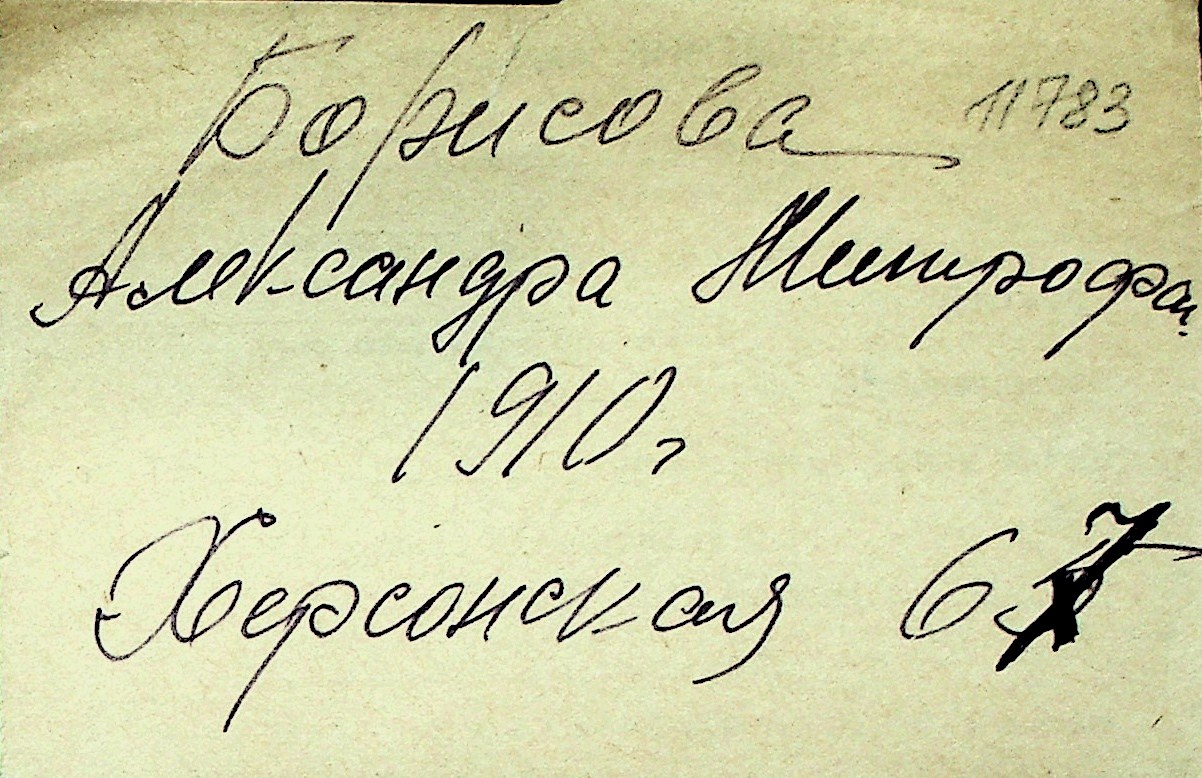 Борисова 11783
Александра Митрофан.
1910г
Херсонская 67